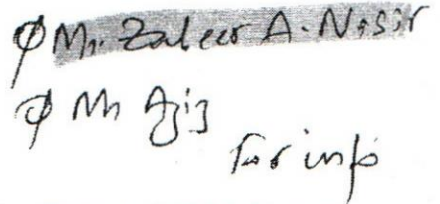 Mr. Zaheer A. Nasir
Mr Aziz
For info